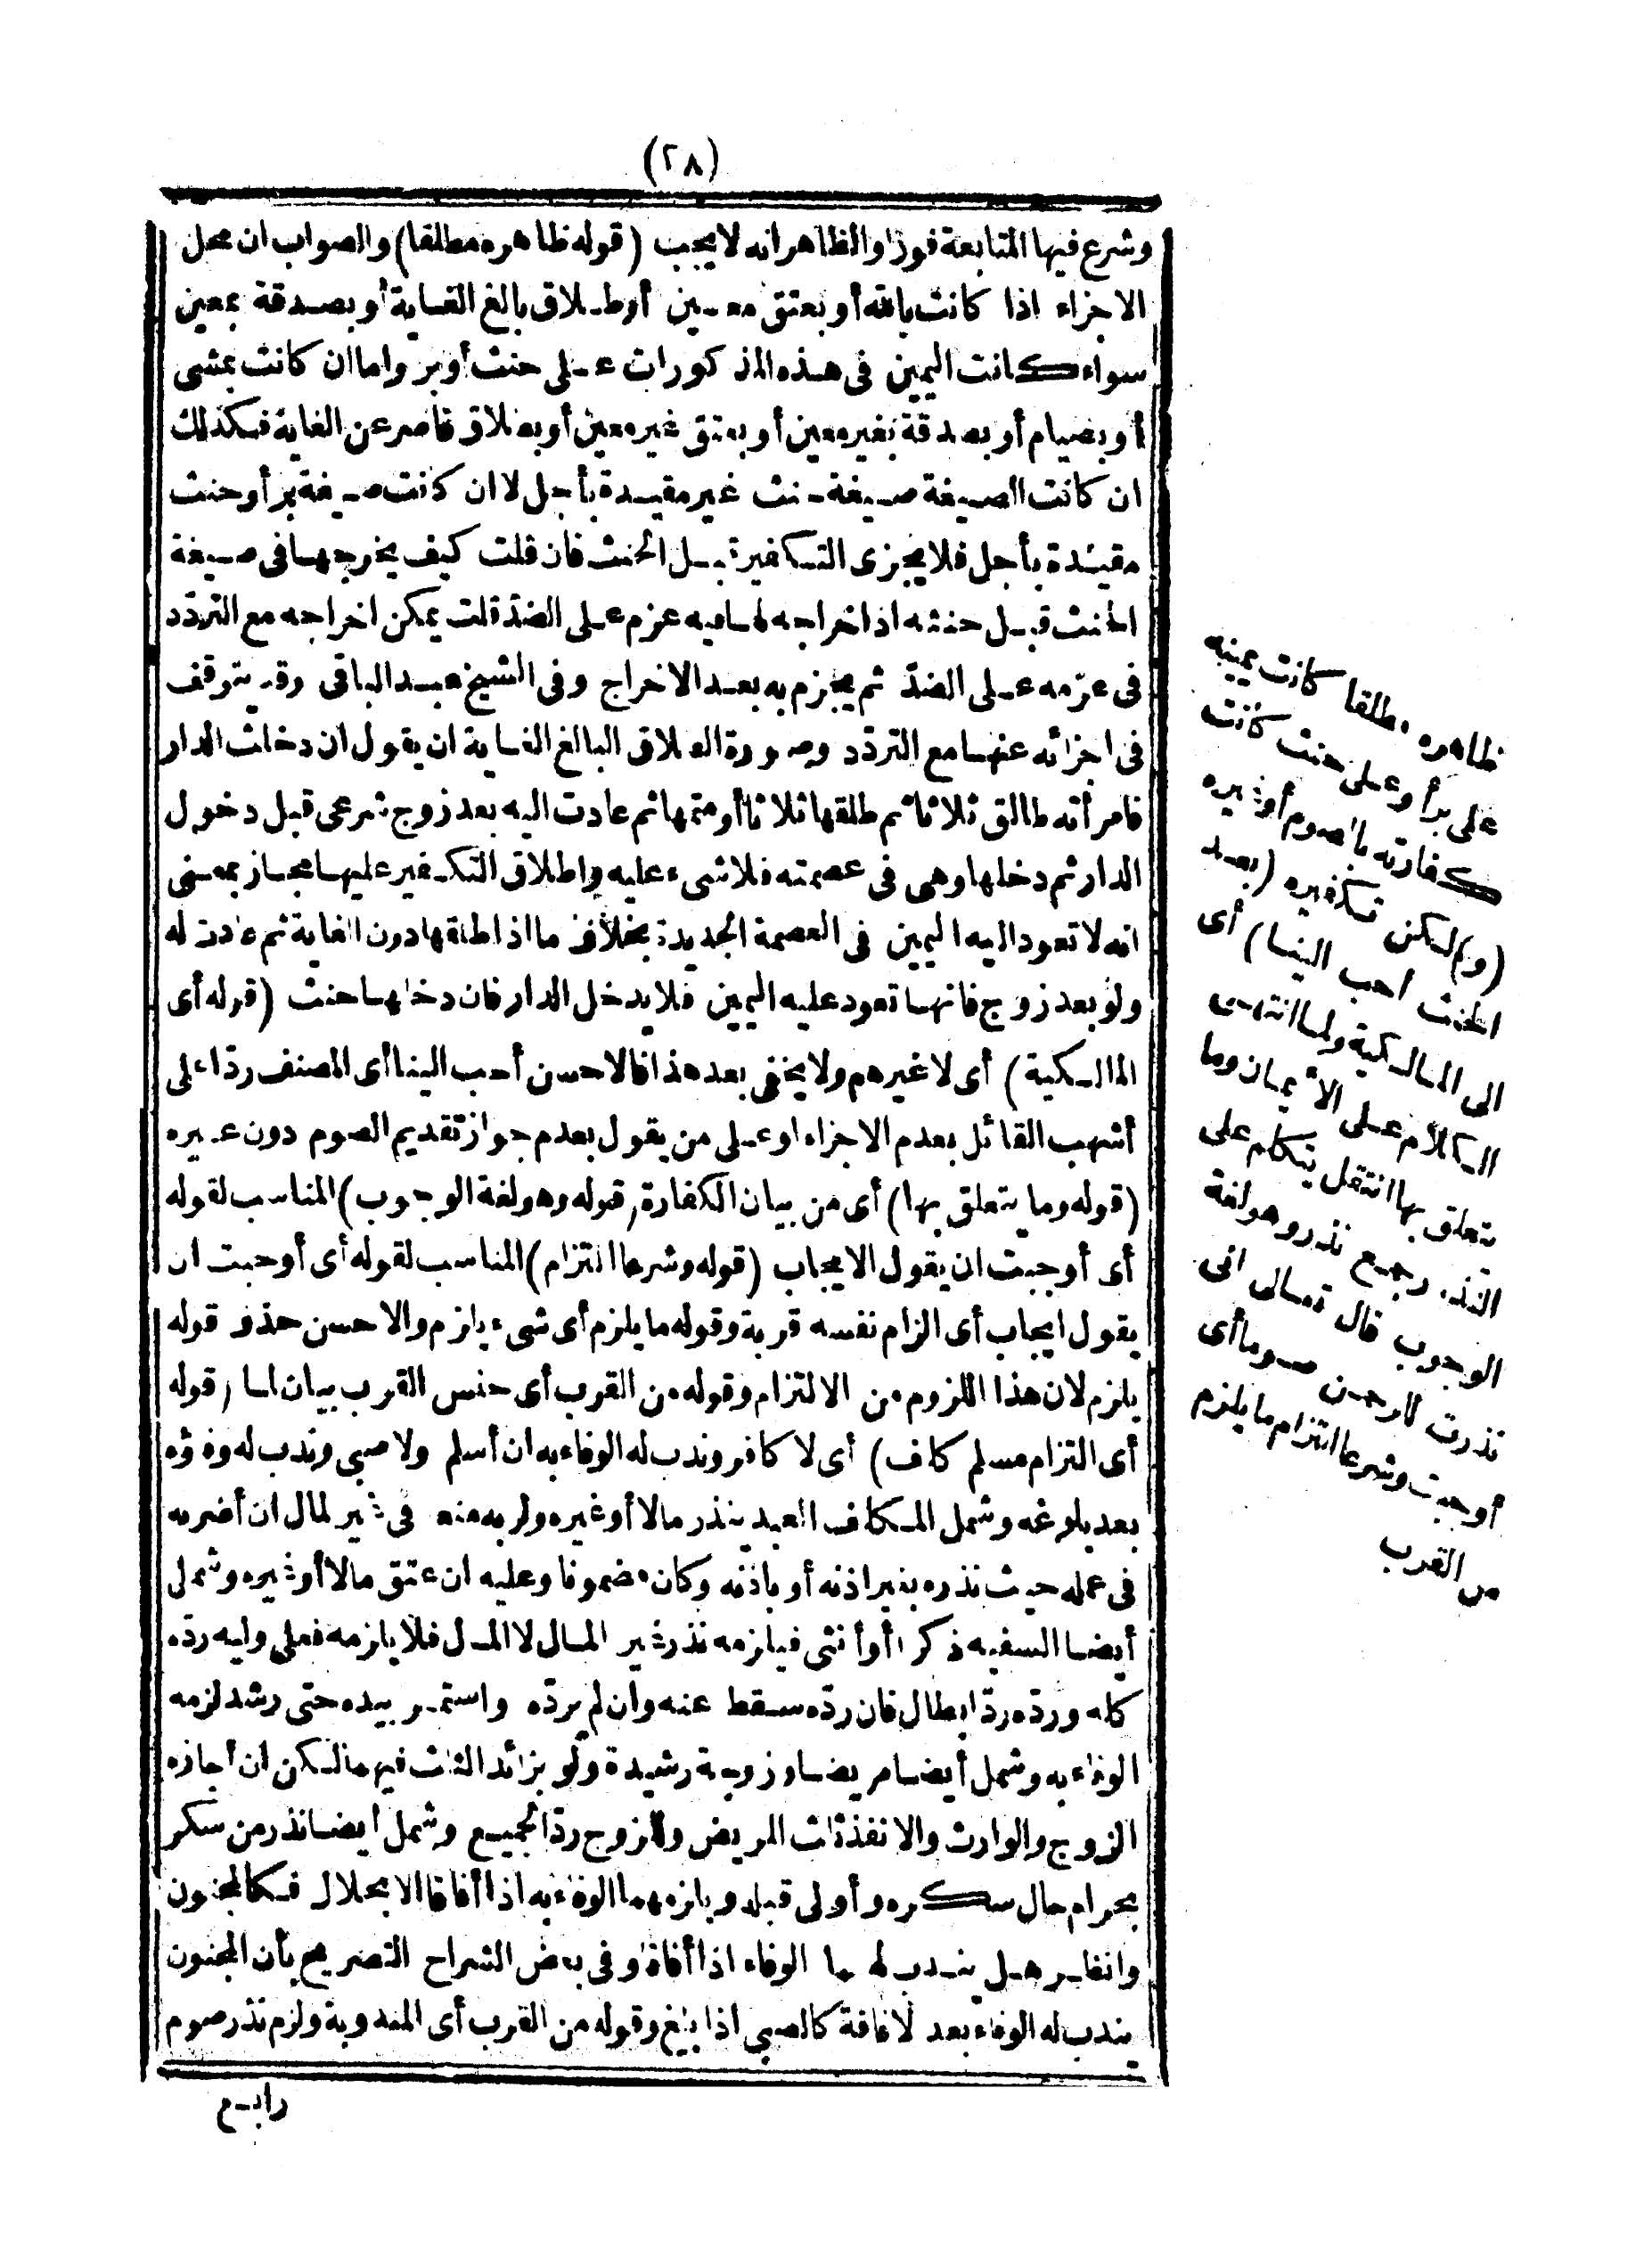 (٢٨)
وشرع فيها المتابعة فورا والظاهر انه لا يجب (قوله ظاهره مطلقا) والصواب ان محل
الاجزاء اذا كانت بالله أو بعتق معين أو طلاق بالغ الغاية أو بصدقة بمعين
سواء كانت اليمين فى هذه المذكورات على حنث أو بر واما ان كانت بمشى
أو بصيام أو بصدقة بغير معين أو بعتق غير معين أو بطلاق قاصر عن الغاية فكذلك
ان كانت الصيغة صيغة حنث غير مقيدة بأجل لا ان كانت صيغة بر أو حنث
مقيدة بأجل فلا يجزى التكفير قبل الحنث فان قلت كيف يخرجها فى صيغة
الحنث قبل حنثه اذ اخراجه لها فيه عزم على الضد قلت يمكن اخراجه مع التردد
فى عزمه على الضد ثم يجزم به بعد الاخراج وفى الشيخ عبد الباقى وقد يتوقف
فى اجزائه عنها مع التردد وصورة الطلاق البالغ الغاية ان يقول ان دخلت الدار
فامرأته طالق ثلاثا ثم طلقها ثلاثا أو متمها ثم عادت اليه بعد زوج شرعى قبل دخول
الدار ثم دخلها وهى فى عصمته فلا شىء عليه واطلاق التكفير عليها مجاز بمعنى
انه لا تعود اليه اليمين فى العصمة الجديدة بخلاف ما اذا طلقها دون الغاية ثم عادت له
ولو بعد زوج فانها تعود عليه اليمين فلا يدخل الدار فان دخلها حنث (قوله أى
المالكية) أى لا غيرهم ولا يخفى بعد هذا فالاحسن أحب الينا أى المصنف ردا على
أشهب القائل بعدم الاجزاء او على من يقول بعدم جواز تقديم الصوم دون غيره
(قوله وما يتعلق بها) أى من بيان الكفارة (قوله وهو لغة الوجوب) المناسب لقوله
أى أوجبت ان يقول الايجاب (قوله وشرعا التزام) المناسب لقوله أى أوجبت ان
يقول ايجاب أى الزام نفسه قربة وقوله ما يلزم أى شىء يلزم والاحسن حذف قوله
يلزم لان هذا اللزوم من الالتزام وقوله من القرب أى جنس القرب بيان لما (قوله
أى التزام مسلم كلف) أى لا كافر وندب له الوفاء به ان أسلم ولا صبى وندب له وفؤه
بعد بلوغه وشمل المكلف العبد ينذر مالا أو غيره ولربه منعه فى غير المال ان أضر به
فى عمله حيث نذره بغير اذنه أو باذنه وكان مضمونا وعليه ان عتق مالا أو غيره وشمل
أيضا السفيه ذكرا أو أنثى فيلزمه نذر غير المال لا المال فلا يلزمه فعلى وليه رده
كله ورده رد ابطال فان رده سقط عنه وان لم يرده واستمر بيده حتى رشد لزمه
الوفاء به وشمل أيضا مريضا وزوجة رشيدة ولو بزائد الثلث فيهما لكن ان أجازه
الزوج والوارث والا نفذ ثلث المريض وللزوج رد الجميع وشمل أيضا نذر من سكر
بحرام حال سكره وأولى قبله ويلزمهما الوفاء به اذا أفاقا لا بحلال فكالمجنون
وانظر هل يندب لهما الوفاء اذا أفاقا وفى بعض الشراح التصريح بأن المجنون
يندب له الوفاء بعد الافاقة كالصبى اذا بلغ وقوله من القرب أى المندوبة ولزم نذر صوم
رابع
ظاهره مطلقا كانت يمينه
على بر أو على حنث كانت
كفارته بالصوم أو غيره
(و) لكن تكفيره (بعد
الحنث احب الينا) أى
الى المالكية ولما انتهى
الكلام على الأيمان وما
يتعلق بها انتقل يتكلم على
النذر رجيع نذر وهو لغة
الوجوب قال تعالى انى
نذرت للرحمن صوما أى
أوجبت وشرعا التزام ما يلزم
من القرب